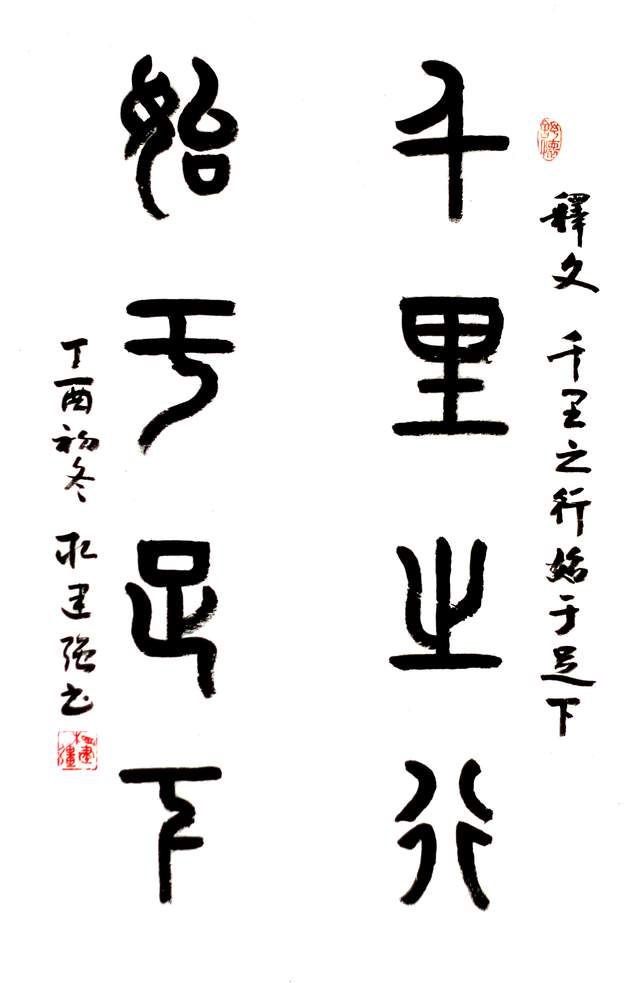 释文 千里之行始于足下
千里之行
始于足下
丁酉初冬 建强书